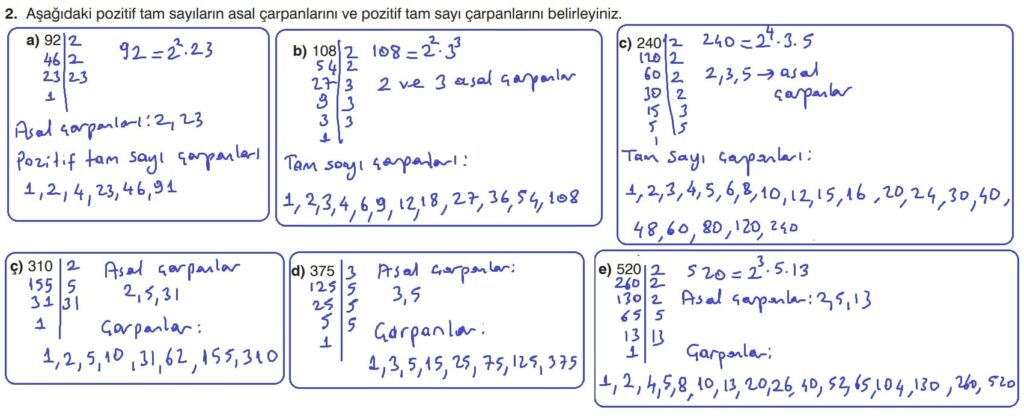 2. Aşağıdaki pozitif tam sayıların asal çarpanlarını ve pozitif tam sayı çarpanlarını belirleyiniz.
a) 92 2
46 2
23 23
1
92 = 2² . 23
Asal çarpanları : 2, 23
Pozitif tam sayı çarpanları
1, 2, 4, 23, 46, 91
b) 108 2
54 2
27 3
9 3
3 3
1
108 = 2² . 3³
2 ve 3 asal çarpanlar
Tam sayı çarpanları :
1, 2, 3, 4, 6, 9, 12, 18, 27, 36, 54, 108
c) 240 2
120 2
60 2
30 2
15 3
5 5
1
240 = 2⁴ . 3 . 5
2, 3, 5 → asal
çarpanlar
Tam sayı çarpanları :
1, 2, 3, 4, 5, 6, 8, 10, 12, 15, 16, 20, 24, 30, 40,
48, 60, 80, 120, 240
ç) 310 2
155 5
31 31
1
Asal çarpanlar
2, 5, 31
Çarpanlar :
1, 2, 5, 10, 31, 62, 155, 310
d) 375 3
125 5
25 5
5 5
1
Asal çarpanlar :
3, 5
Çarpanlar :
1, 3, 5, 15, 25, 75, 125, 375
e) 520 2
260 2
130 2
65 5
13 13
1
520 = 2³ . 5 . 13
Asal çarpanlar : 2, 5, 13
Çarpanlar ;
1, 2, 4, 5, 8, 10, 13, 20, 26, 40, 52, 65, 104, 130, 260, 520